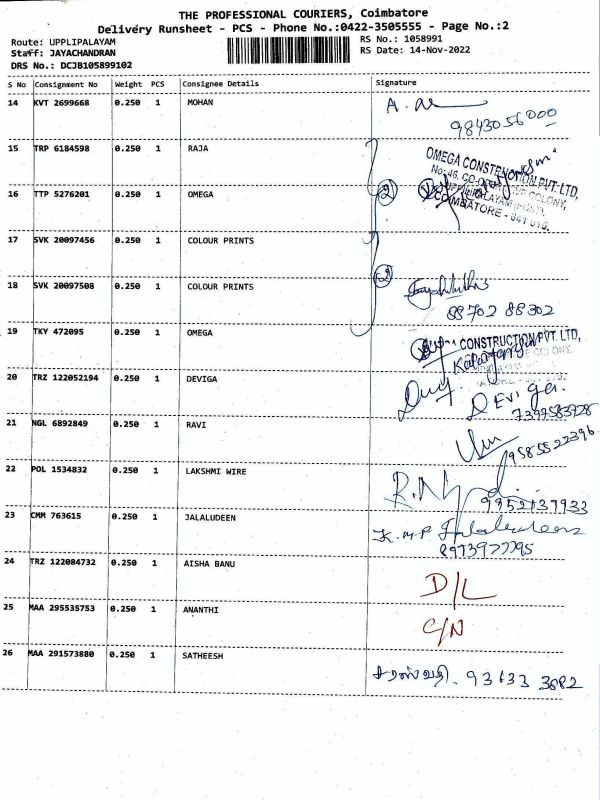 THE PROFESSIONAL COURIERS, Coimbatore
Delivery Runsheet - PCS - Phone No.:0422-3505555 - Page No.:2
Route: UPPLIPALAYAM RS No.: 1058991
Staff: JAYACHANDRAN RS Date: 14-Nov-2022
DRS No.: DCJB105899102
S No Consignment No Weight PCS Consignee Details Signature
14 KVT 2699668 0.250 1 MOHAN
9843056000
15 TRP 6184598 0.250 1 RAJA
OMEGA CONSTRUCTION PVT. LTD,
No: 46, CO-OPERATIVE COLONY,
16 TTP 5276201 0.250 1 OMEGA 2
COIMBATORE - 641 015.
17 SVK 20097456 0.250 1 COLOUR PRINTS
18 SVK 20097508 0.250 1 COLOUR PRINTS 2
88702 88302
19 TKY 472095 0.250 1 OMEGA
CONSTRUCTION PVT. LTD,
20 TRZ 122052194 0.250 1 DEVIGA
DEViga.
21 NGL 6892849 0.250 1 RAVI
9585522396
22 POL 1534832 0.250 1 LAKSHMI WIRE
23 CMM 763615 0.250 1 JALALUDEEN
K.M.P.
24 TRZ 122084732 0.250 1 AISHA BANU D/L
25 MAA 295535753 0.250 1 ANANTHI C/N
26 MAA 291573880 0.250 1 SATHEESH
சரஸ்வதி. 93633 3682